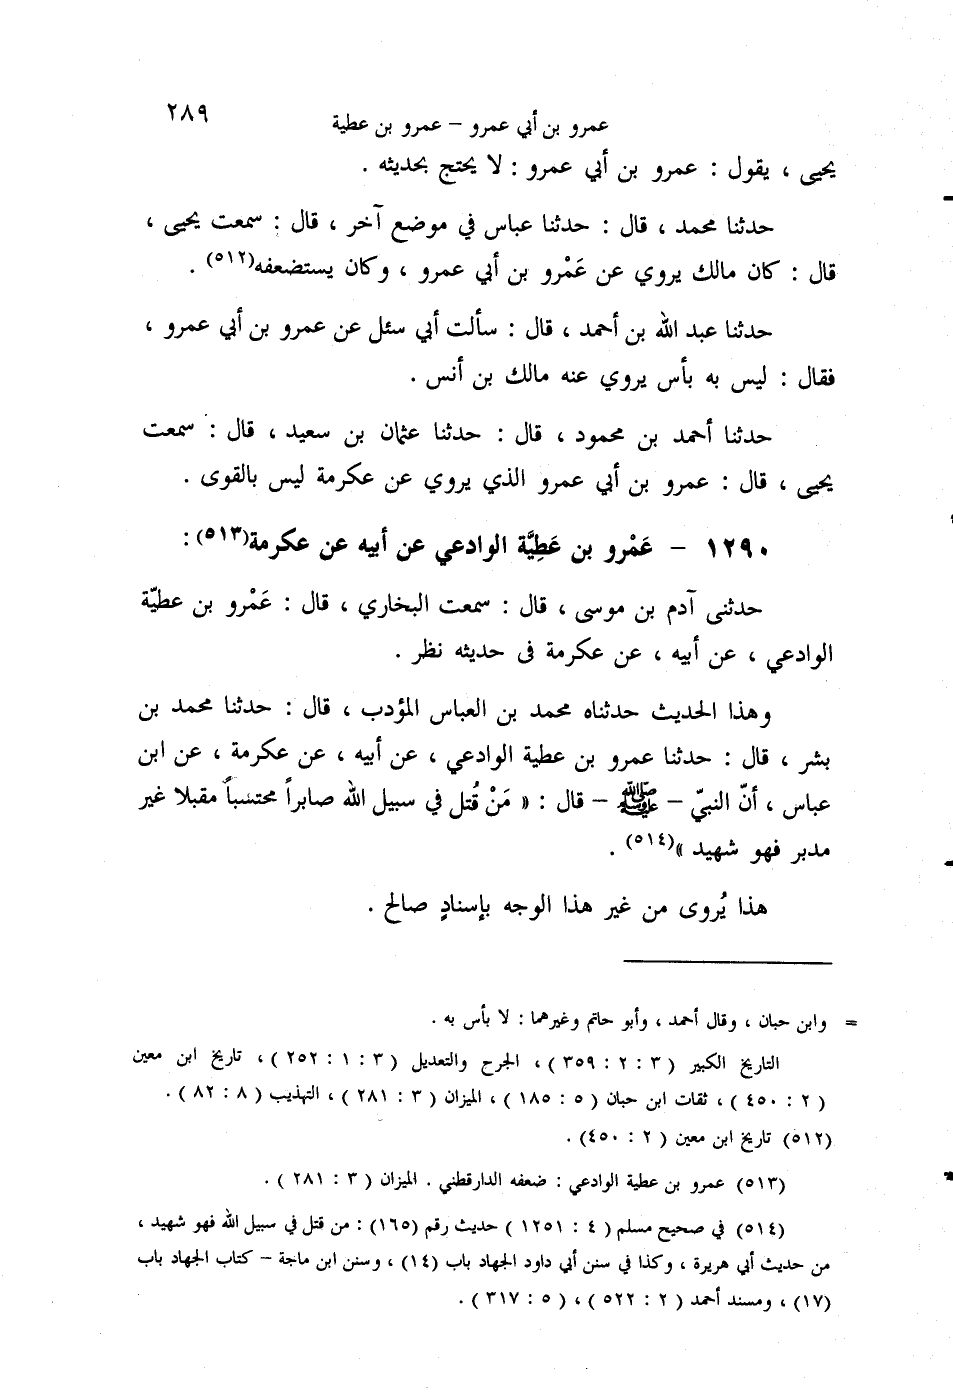 ٢٨٩
عمرو بن أبي عمرو – عمرو بن عطية
يحيى ، يقول : عمرو بن أبي عمرو : لا يحتج بحديثه .
حدثنا محمد ، قال : حدثنا عباس في موضع آخر ، قال : سمعت يحيى ،
قال : كان مالك يروي عن عَمْرو بن أبي عمرو ، وكان يستضعفه(٥١٢) .
حدثنا عبد الله بن أحمد ، قال : سألت أبي سئل عن عمرو بن أبي عمرو ،
فقال : ليس به بأس يروي عنه مالك بن أنس .
حدثنا أحمد بن محمود ، قال : حدثنا عثمان بن سعيد ، قال : سمعت
يحيى ، قال : عمرو بن أبي عمرو الذي يروي عن عكرمة ليس بالقوى .
١٢٩٠ – عَمْرو بن عَطِيَّة الوادعي عن أبيه عن عكرمة(٥١٣) :
حدثنى آدم بن موسى ، قال : سمعت البخاري ، قال : عَمْرو بن عطيّة
الوادعي ، عن أبيه ، عن عكرمة فى حديثه نظر .
وهذا الحديث حدثناه محمد بن العباس المؤدب ، قال : حدثنا محمد بن
بشر ، قال : حدثنا عمرو بن عطية الوادعي ، عن أبيه ، عن عكرمة ، عن ابن
عباس ، أنّ النبيّ – ﷺ – قال : « مَنْ قُتل في سبيل الله صابراً محتسباً مقبلا غير
مدبر فهو شهيد »(٥١٤) .
هذا يُروى من غير هذا الوجه بإسنادٍ صالح .
= وابن حبان ، وقال أحمد ، وأبو حاتم وغيرهما : لا بأس به .
التاريخ الكبير ( ٣ : ٢ : ٣٥٩ ) ، الجرح والتعديل ( ٣ : ١ : ٢٥٢ ) ، تاريخ ابن معين
( ٢ : ٤٥٠ ) ، ثقات ابن حبان ( ٥ : ١٨٥ ) ، الميزان ( ٣ : ٢٨١ ) ، التهذيب ( ٨ : ٨٢ ) .
(٥١٢) تاريخ ابن معين ( ٢ : ٤٥٠) .
(٥١٣) عمرو بن عطية الوادعي : ضعفه الدارقطني . الميزان ( ٣ : ٢٨١ ) .
(٥١٤) في صحيح مسلم ( ٤ : ١٢٥١ ) حديث رقم (١٦٥) : من قتل في سبيل الله فهو شهيد ،
من حديث أبي هريرة ، وكذا في سنن أبي داود الجهاد باب (١٤) ، وسنن ابن ماجة – كتاب الجهاد باب
(١٧) ، ومسند أحمد ( ٢ : ٥٢٢ ) ، ( ٥ : ٣١٧ ) .